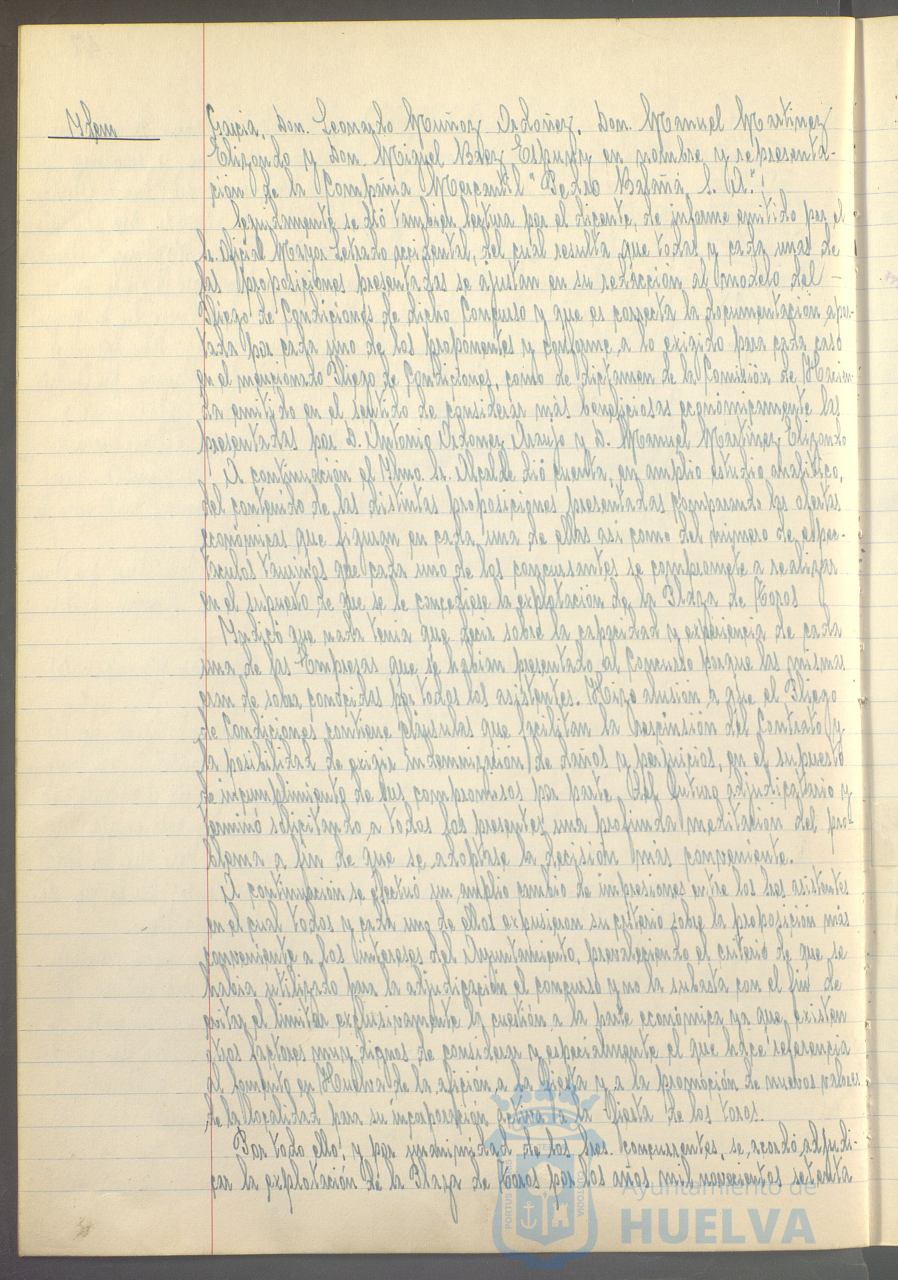 Idem
García, Don Leonardo Muñoz Ordoñez, Don Manuel Martinez
Elizondo y Don Miguel Baez Espuny en nombre y representa-
ción de la Compañia Mercantil "Pedro Balañá, S. A."
Seguidamente se dió tambien lectura por el dicente, de informe emitido por el
Sr. Oficial Mayor Letrado accidental, del cual resulta que todas y cada una de
las proposiciones presentadas se ajustan en su redacción al modelo del -
Pliego de Condiciones de dicho Concurso y que es correcta la documentación apor-
tada por cada uno de los proponentes y conforme a lo exigido para cada caso
en el mencionado Pliego de Condiciones, como de dictamen de la Comisión de Hacien-
da emitido en el sentido de considerar más beneficiosas económicamente las
presentadas por D. Antonio Ordoñez Araujo y D. Manuel Martinez Elizondo
A continuación el Ilmo. Sr. Alcalde dió cuenta, en amplio estudio analítico,
del contenido de las distintas proposiciones presentadas comparando las ofertas
económicas que figuran en cada una de ellas asi como del número de espec-
táculos taurinos que cada uno de los concursantes se compromete a realizar
en el supuesto de que se le concediese la explotación de la Plaza de Toros
Indicó que nada tenia que decir sobre la capacidad y experiencia de cada
una de las Empresas que se habian presentado al Concurso porque las mismas
eran de sobra conocidas por todos los asistentes. Hizo alusión a que el Pliego
de Condiciones contiene cláusulas que facilitan la rescinsión del Contrato y
la posibilidad de exigir indemnización de daños y perjuicios, en el supuesto
de incumplimiento de sus compromisos por parte del futuro adjudicatario y
terminó solicitando a todos los presentes una profunda meditación del pro-
blema a fin de que se adoptase la decisión más conveniente.
A continuación se efectuó un amplio cambio de impresiones entre los Sres asistentes
en el cual todos y cada uno de ellos expusieron su criterio sobre la proposición más
conveniente a los intereses del Ayuntamiento, prevaleciendo el criterio de que se
habia utilizado para la adjudicación el concurso y no la subasta con el fin de
evitar el limitar exclusivamente la cuestión a la parte económica ya que existen
otros factores muy dignos de considerar y especialmente el que hace referencia
al fomento en Huelva de la afición a la Fiesta y a la promoción de nuevos valores
de la localidad para su incorporación activa a la Fiesta de los toros.
Por todo ello, y por unanimidad de los Sres. concurrentes, se acordó adjudi-
car la explotación de la Plaza de Toros por los años mil novecientos setenta
Ayuntamiento de
HUELVA